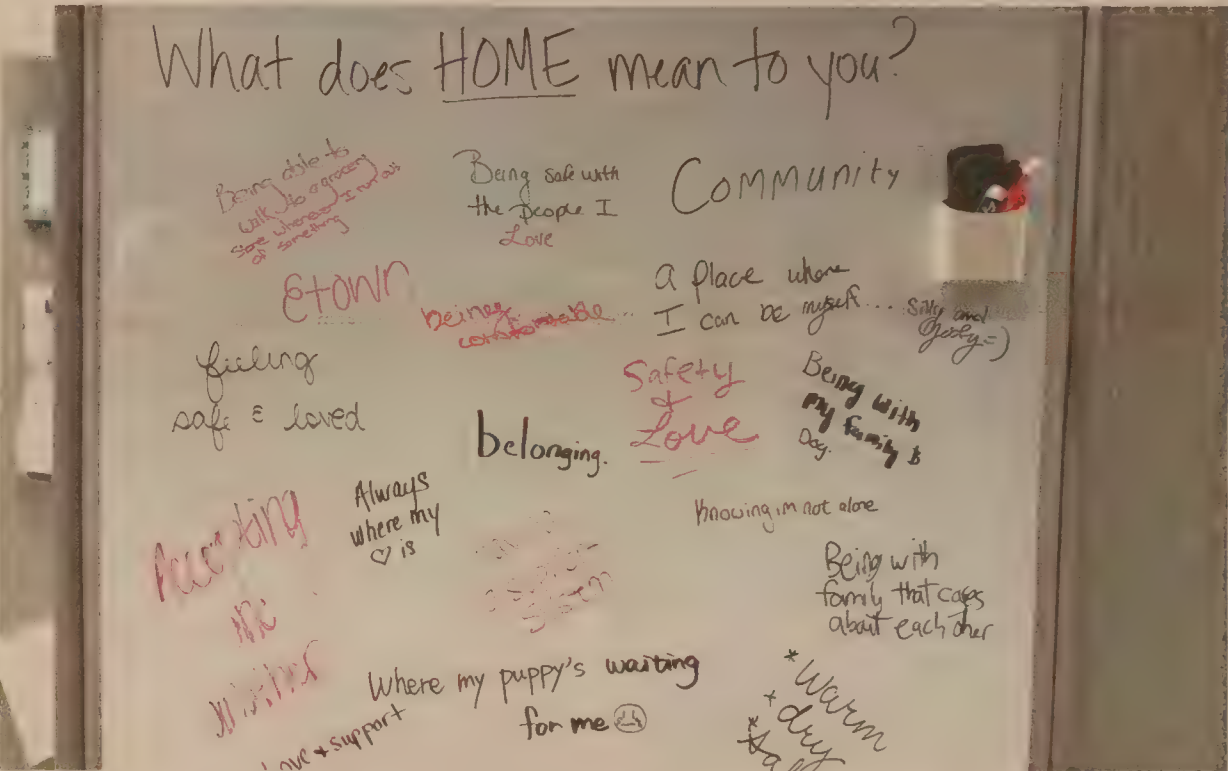 What does HOME mean to you?
Being able to
walk to a grocery
store whenever I run out
of something
Being safe with
the people I
Love
Community
Etown
being
comfortable
a place where
I can be myself... silly and
goofy =)
feeling
safe & loved
belonging.
Safety
+
Love
Being with
my family &
Dog.
Accepting
Always
where my
♡ is
Knowing im not alone
Being with
family that cares
about each other
Where my puppy's waiting
for me
love + support
* Warm
* dry
*